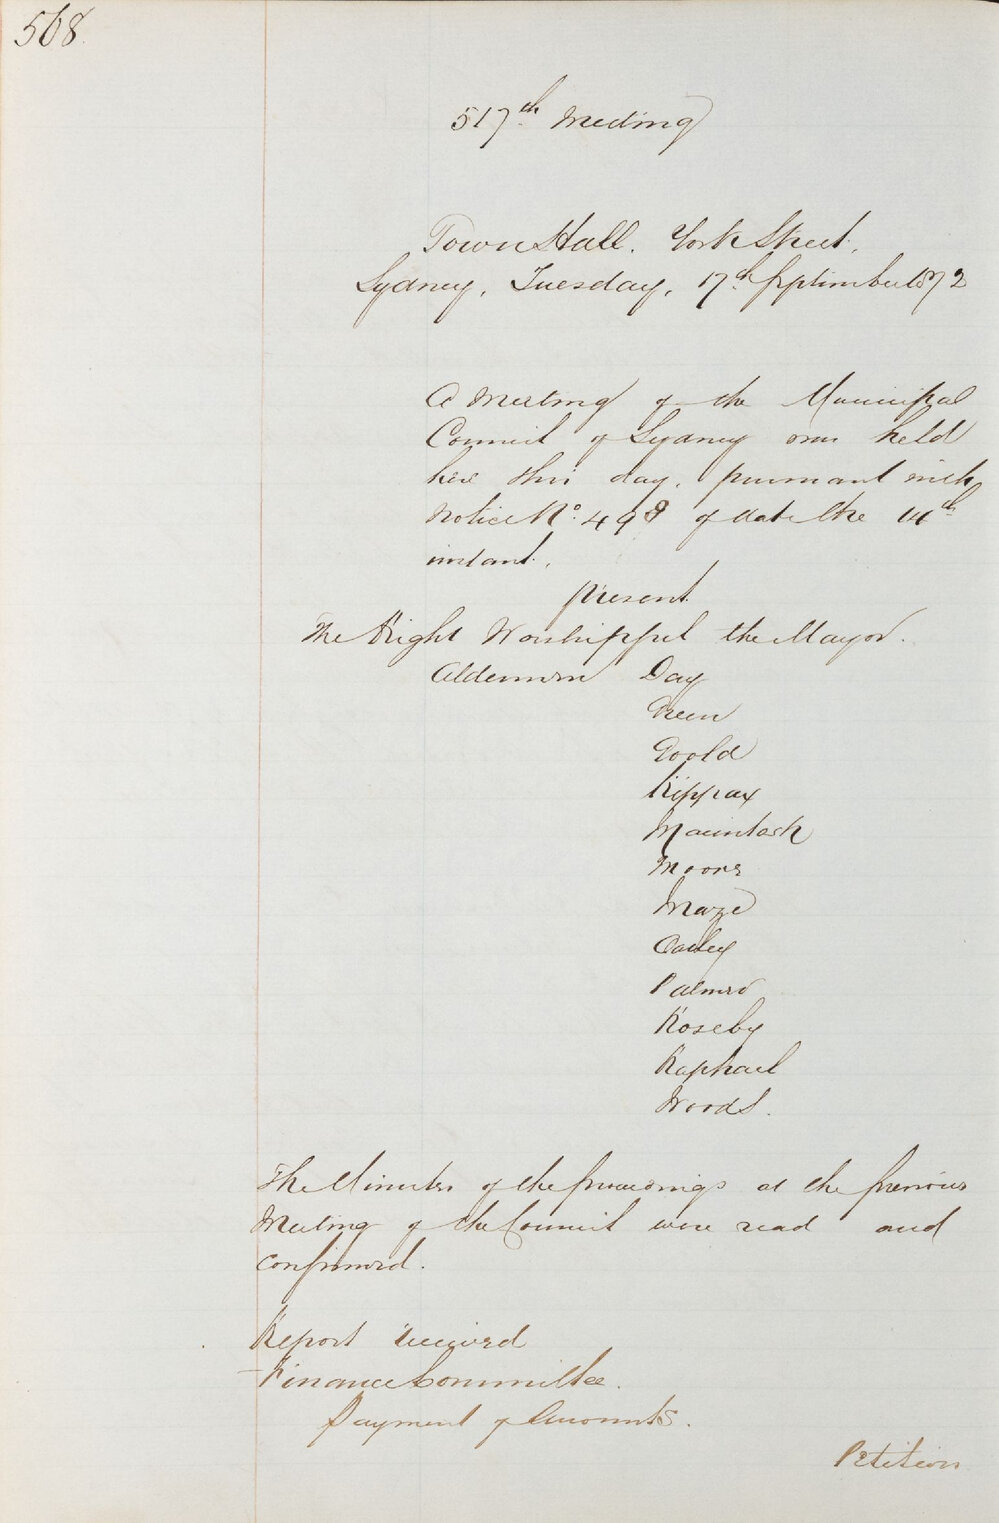 568
517th Meeting
Town Hall. York Street.
Sydney, Tuesday, 17th September 1872
A Meeting of the Municipal
Council of Sydney was held
here this day, pursuant with
Notice No. 498 of date the 14th
instant.
present
The Right Worshipful the Mayor.
Aldermen Day
Green
Goold
Kippax
Macintosh
Moore
Maze
Oatley
Palmer
Roseby
Raphael
Woods.
The Minutes of the proceedings at the previous
Meeting of the Council were read and
confirmed.
Report received
Finance Committee.
Payment of Amounts.
Petition